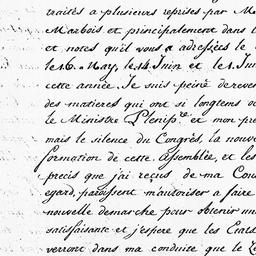 traités a plusieurs reprises par M
Marbois et principalement dans l
et notes qu'il vous a adressées le
le 16. May, le 14 Juin et le 1. Jui
cette année. Je suis peiné de reven
des matieres qui ont si longtems o
le Ministre Plenip.re et mon pre
mais le silence du Congrès, la nouve
formation de cette Assemblée, et les
precis que j'ai reçus de ma Cou
egard, paroissent m'autoriser a faire
nouvelle demarche pour obtenir un
satisfaisante et j'espere que les Etats
verront dans ma conduite que le